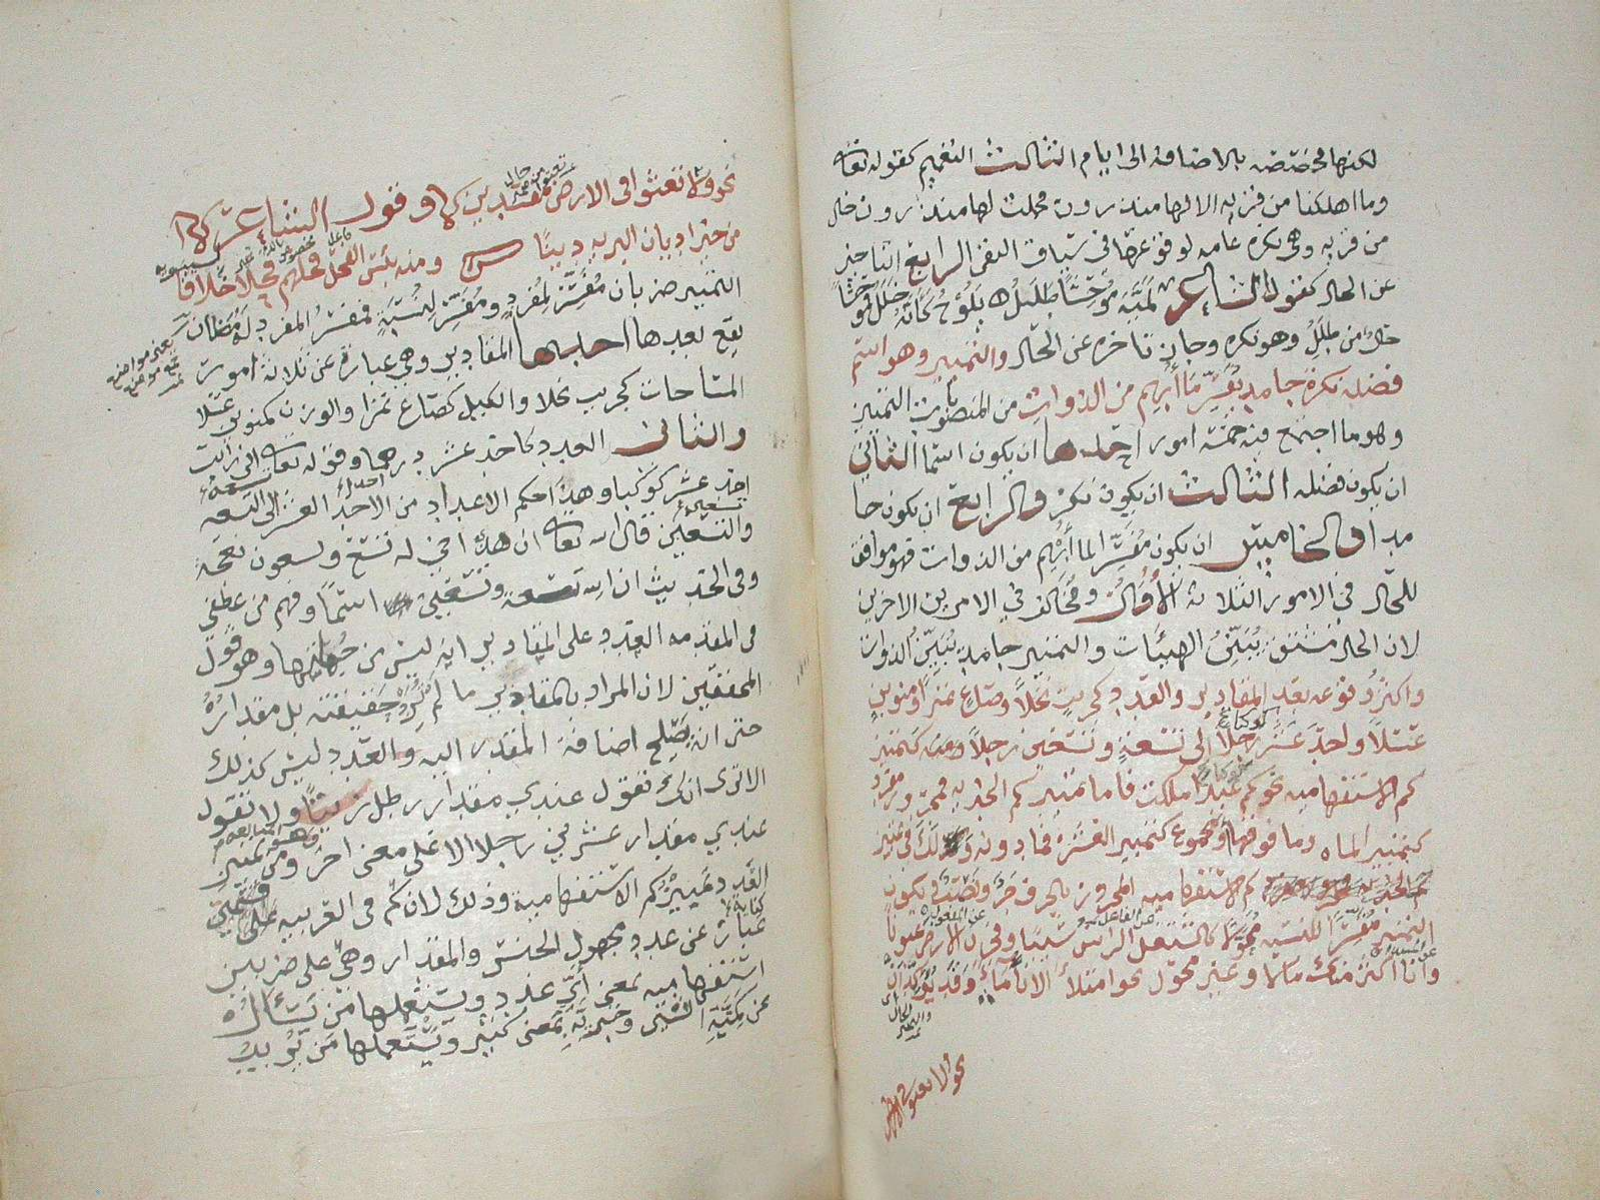 لكنها مخصصه بالاضافة الى ايام الثالث التعميم كقوله تعالى
وما اهلكنا من قريه الا لها منذرون فجملت لها منذرون حال
من قريه وهي نكره عامه لوقوعها في سياق النفي الرابع
عن الحال كقول الشاعر لميه موحشا طلل يلوح كانه خلل
حال من طلل وهو نكره وجاز تاخره عن الحال والتمييز وهو اسم
فضله نكرة جامد يفسر ما ابهم من الذوات من المنصوبات التمييز
وهو ما اجتمع فيه خمسة امور احدها ان يكون اسما الثاني
ان يكون فضله الثالث ان يكون نكره والرابع ان يكون جا
مدا والخامس ان يكون مفسرا لما ابهم من الذوات فهو موافق
للحال في الامور الثلاثة الاول ومخالف في الامرين الاخرين
لان الحال مشتق يبين الهيئات والتمييز جامد يبين الذوات
واكثر وقوعه بعد المقادير والعدد كجريب نخلا وصاع تمرا ومنوين
عسلا واحد عشر كوكبا الى تسعة وتسعين رجلا ومنه تمييز
كم الاستفهاميه نحو كم عبدا ملكت فاما تمييز كم الخبريه فمجرور مفرد
كتمييز المايه وما فوقها او مجموع كتمييز العشره فما دونها ولك في تمييز
كم الاستفهاميه المجروره بالحرف جر ونصب ويكون
التمييز مفسرا للنسبه محولا كاشتعل الراس شيبا وفجرنا الارض عيونا
وانا اكثر منك مالا وغير محول نحو امتلأ الاناء ماء وقد يؤكدان
نحو ولا تعثوا في الارض مفسدين وقول الشاعر
من خير اديان البريه دينا ومنه بئس الفحل فحلهم فحلا خلافا لسيبويه
التمييز ضربان مفسر لمفرد ومفسر لنسبة فمفسر المفرد له مضان
يقع بعدها احدها المقادير وهي عبارة عن ثلاثة امور
المساحات كجريب نخلا والكيل كصاع تمرا والوزن كمنوين عسلا
والثاني العدد كاحد عشر درهما وقوله تعالى اني رايت
احد عشر كوكبا وهكذا حكم الاعداد من الاحد العشر الى التسعه
والتسعين قال الله تعالى ان هذا اخي له تسع وتسعون نعجة
وفي الحديث ان لله تسعة وتسعين اسما وفهم من عطفي
في المقدمه العدد على المقادير انه ليس من جملتها وهو قول
المحققين لان المراد بالمقادير ما لم تُرد حقيقته بل مقداره
حتى انه يصلح اضافة المقدر اليه والعدد ليس كذلك
الا ترى انك تقول عندي مقدار رطل زيتا ولا تقول
عندي مقدار عشرين رجلا الا على معنى اخر ومن تمييز
العدد تمييز كم الاستفهامية وذلك لان كم في العربيه
عبارة عن عدد مجهول الجنس والمقدار وهي على ضربين
استفهاميه بمعنى اي عدد ويستعملها من يسأل
عن كمية الشيء وخبرية بمعنى كثير ويستعملها من يريد